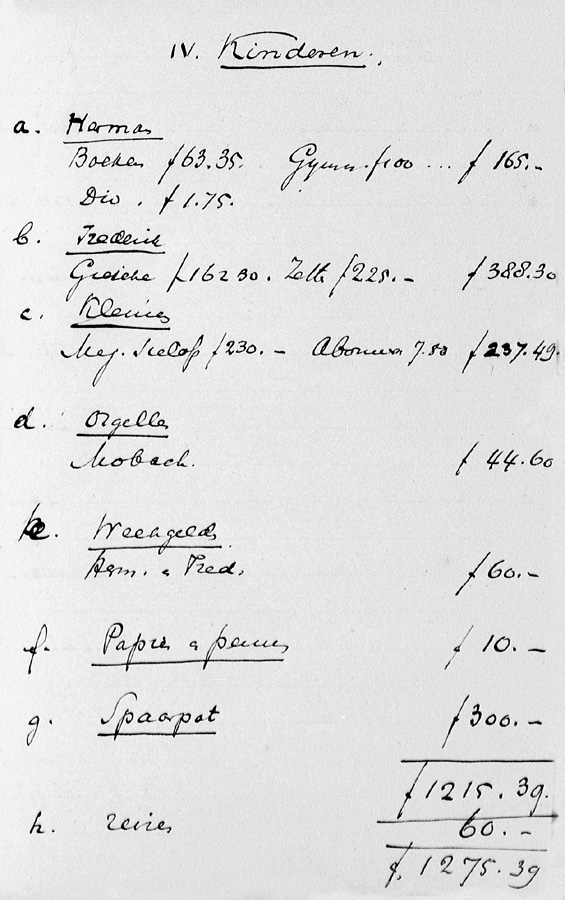 IV. Kinderen.
a. Herman
Boeken f 63.35. Gymn. f 100 ... f 165.-
Div. f 1.75.
b. Frederik
Greiche f 162 30. Zelt f 225.- f 388.30
c. Kleine
Mej. f 230.- Abonnem 7.50 f 237.49.
d. Orgelles
Mobach. f 44.60
e. Weekgeld
Herm. & Fred. f 60.-
f. Papier & pennen f 10.-
g. Spaarpot f 300.-
f 1215.39.
h. reizen 60.-
f. 1275.39